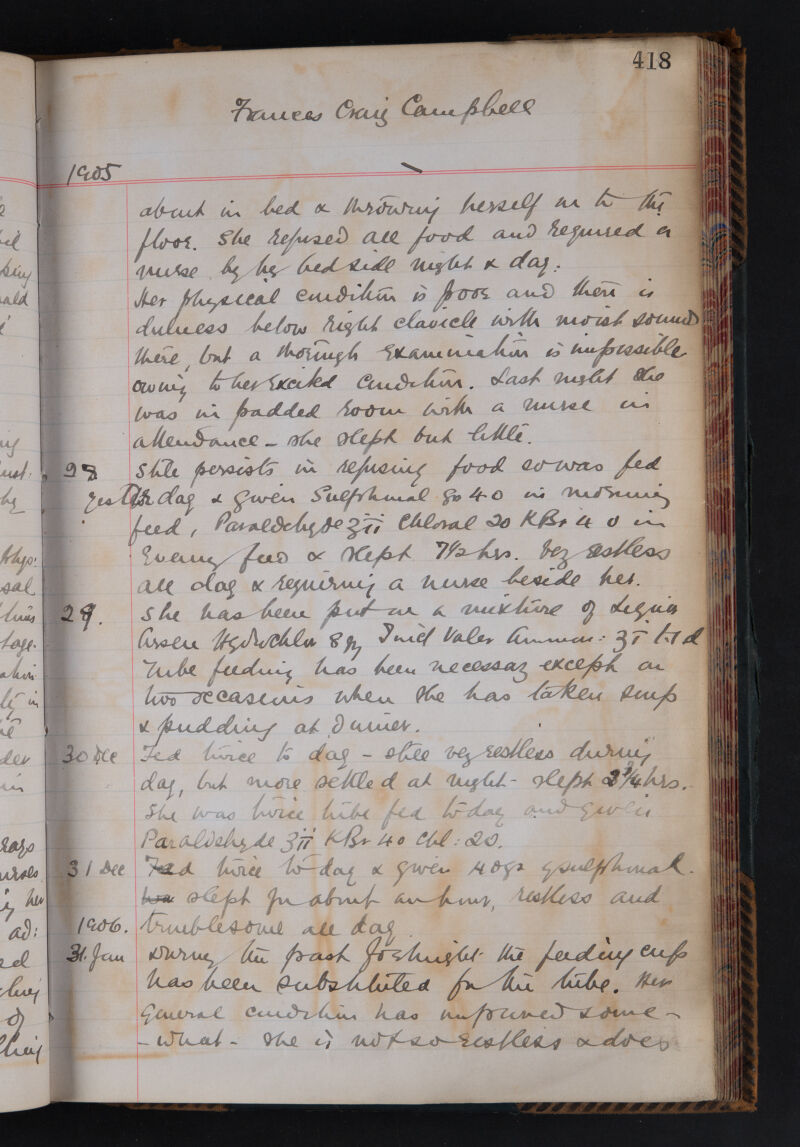 418
Frances Craig Campbell
1905
about in bed & throwing herself on to the
floor. She refused all food and required a
nurse by her bedside night & day.
Her physical condition is poor and there is
dulness below right clavicle with moist sounds
there, but a thorough examination is impossible
owing to her excited condition. Last night she
was in padded room with a nurse in
attendance – she slept but little.
She persists in refusing food so was fed
yesterday & given Sulphonal grs 40 in morning
feed, Paraldehyde ʒii Chloral 20 KBr 40 in
Evening feed & slept 7½ hrs. Very restless
all day & requiring a nurse beside her.
29. She has been put on a mixture of Liquor
Arsen Hydrochlor Valer Ammon: ʒi
Tube feeding has been necessary except on
two occasions when she has taken soup
& pudding at dinner.
30 Dec Fed twice to day – still very restless during
day, but more settled at night – slept 3¾ hrs.
She was twice tube fed to day and given
Paraldehyde ʒii KBr 40 Chl: 20.
31 Dec Fed twice to day & given 40 grs sulphonal.
slept for about an hour, restless and
1906. troublesome all day.
31. Jan During the past fortnight the feeding cup
has been substituted for the tube. Her
General condition has improved some-
-what – she is not so restless & does